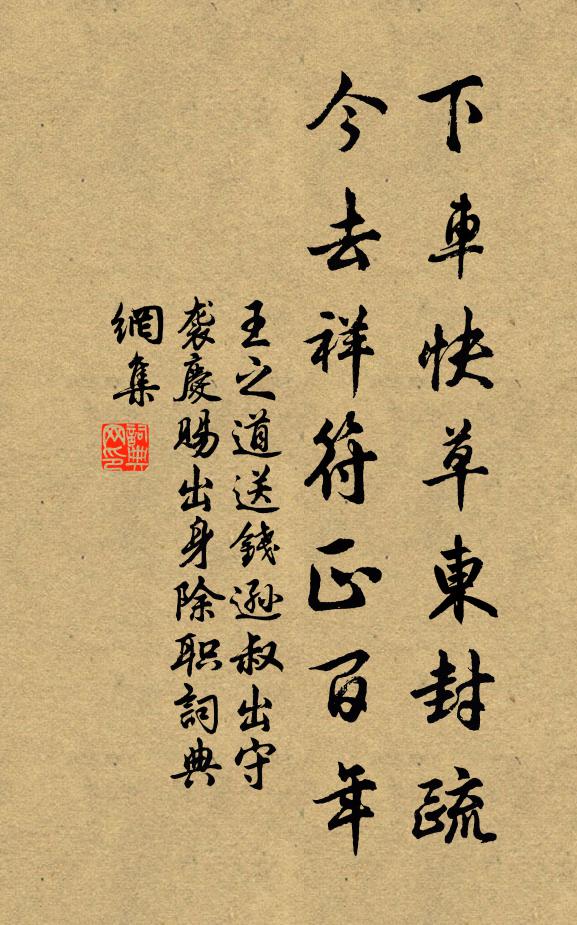 下車快草東封疏
今去祥符正百年
王之道送錢遜叔出守
袭慶賜出身除职詞典
網集
詞典
网印